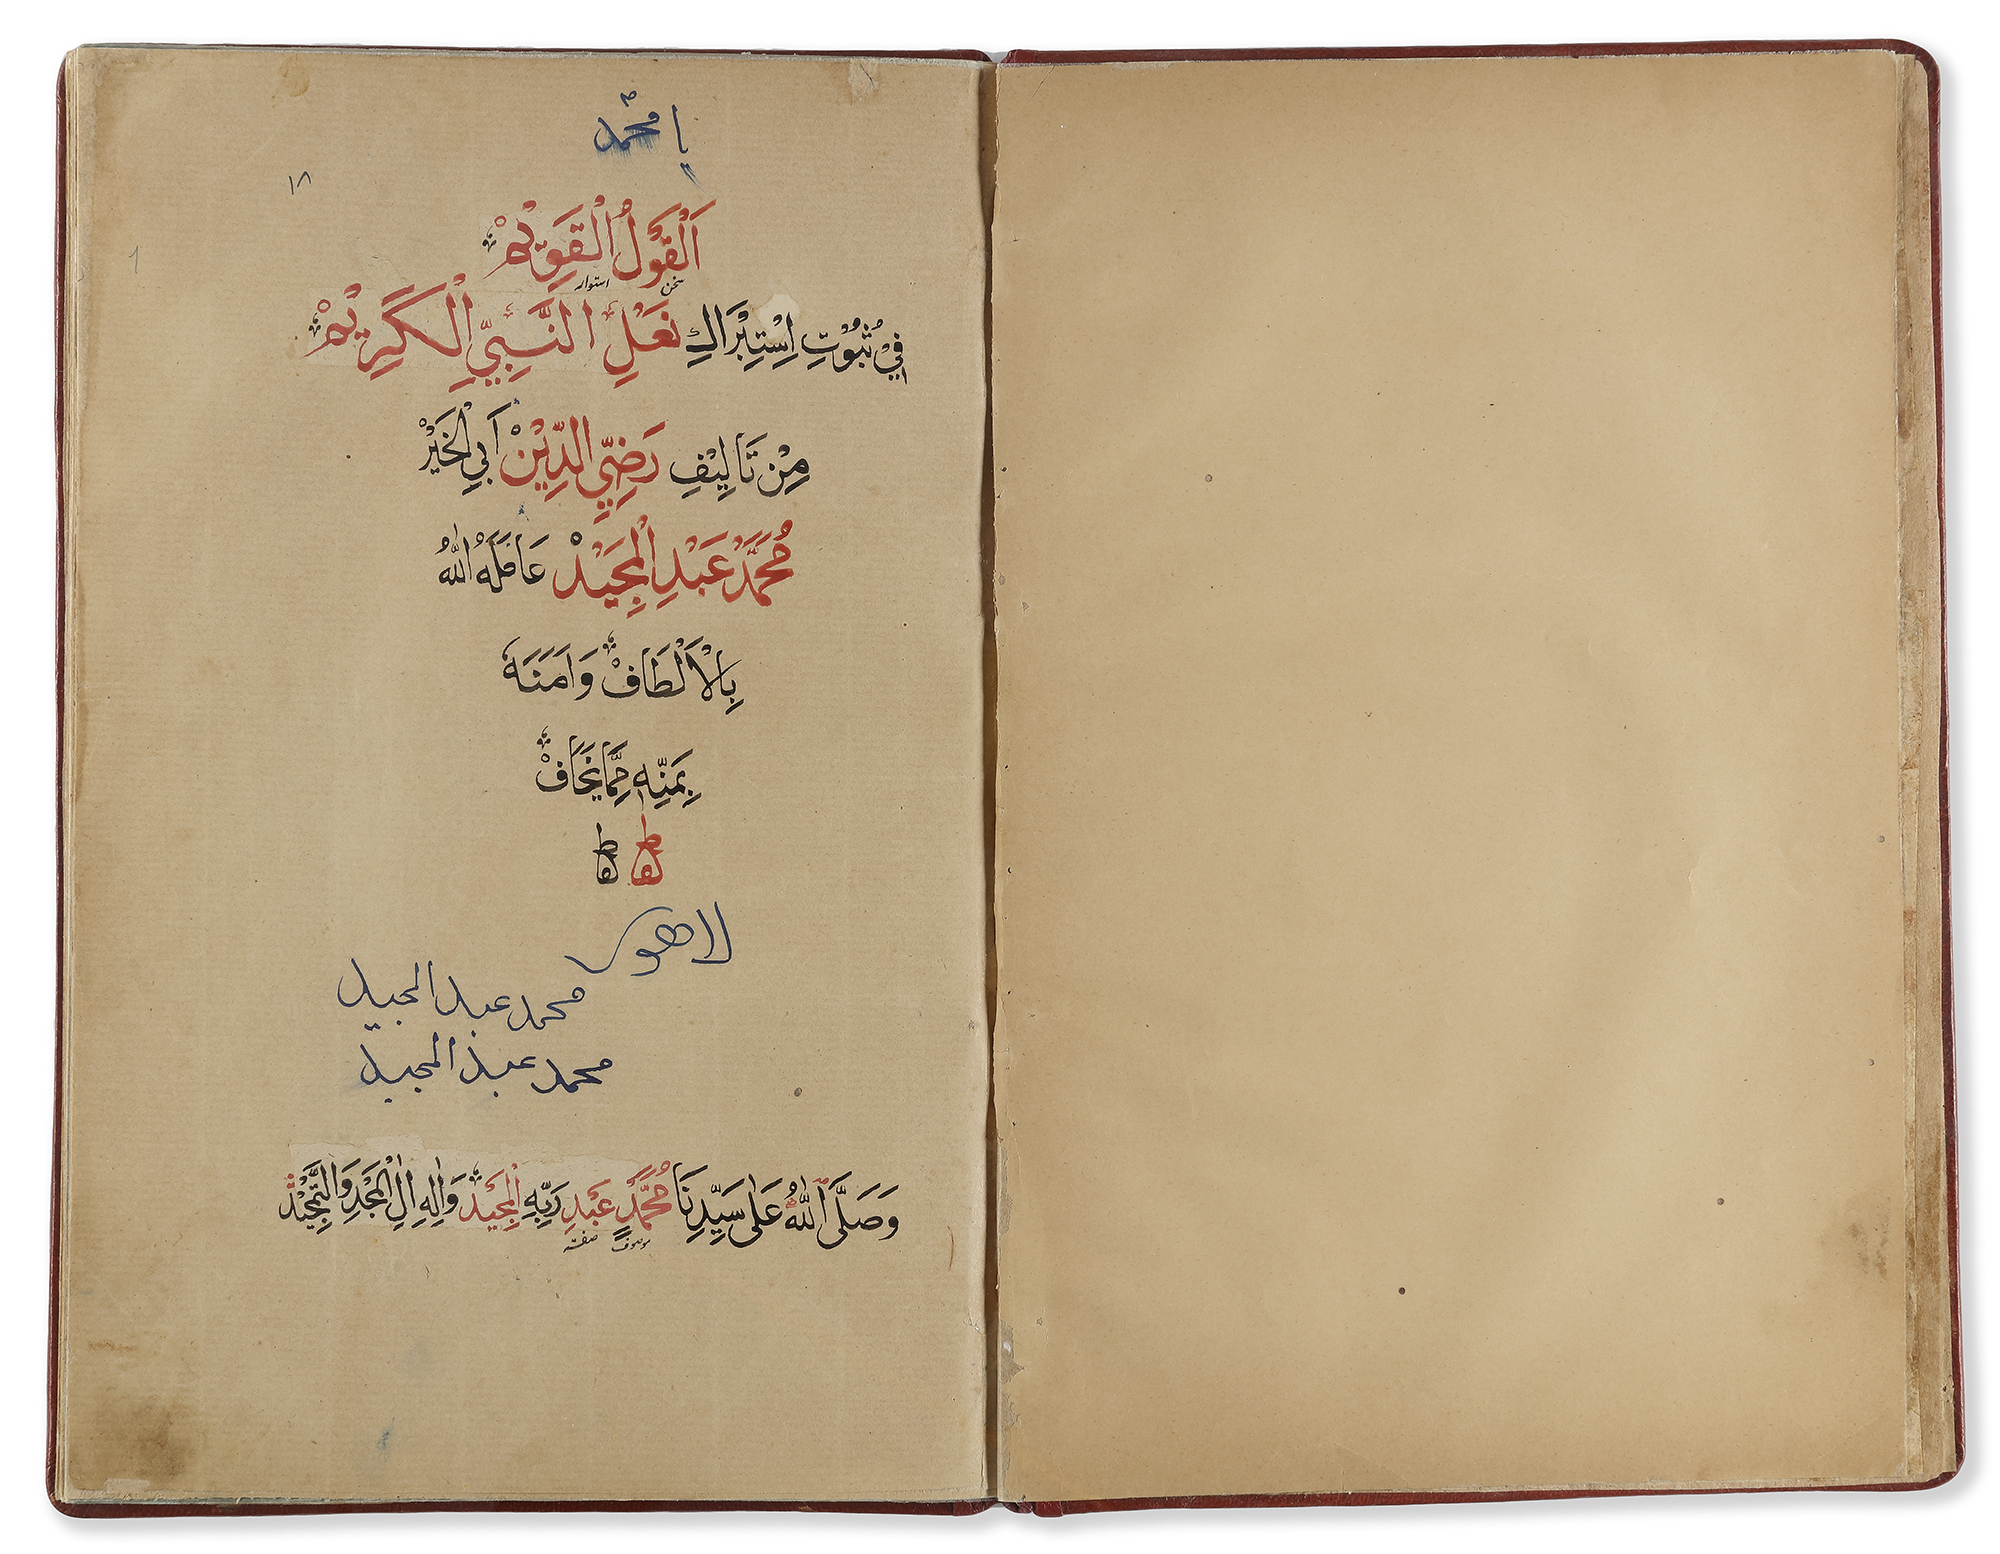 يا محمد
١٨
اَلْقَوْلُ الْقَوِيْمْ
سخن استوار
فِيْ ثُبُوْتِ اِسْتِبْرَاكِ نَعْلِ النَّبِيِّ الْكَرِيْمْ
مِنْ تَالِيْفِ رَضِيِّ الدِّيْنْ اَبِي الْخَيْرْ
مُحَمَّدْ عَبْدِ الْمَجِيْدْ عَامَلَهُ اللّٰهُ
بِالْاَلْطَافْ وَاٰمَنَهٗ
بِمَنِّهٖ مِمَّا يَخَافْ
لاهور
محمد عبد المجيد
محمد عبد المجيد
وَصَلَّى اللّٰهُ عَلٰى سَيِّدِنَا مُحَمَّدٍ عَبْدِ رَبِّهِ الْمَجِيْدْ وَاٰلِهٖ اٰلِ الْمَجْدِ وَالتَّمْجِيْدْ
موصوف صفته